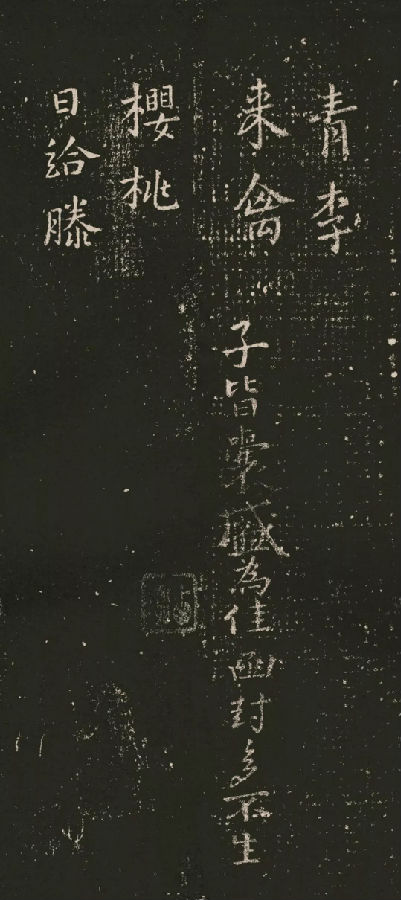 青李
来禽
子皆囊盛為佳函封多不生
櫻桃
日給滕